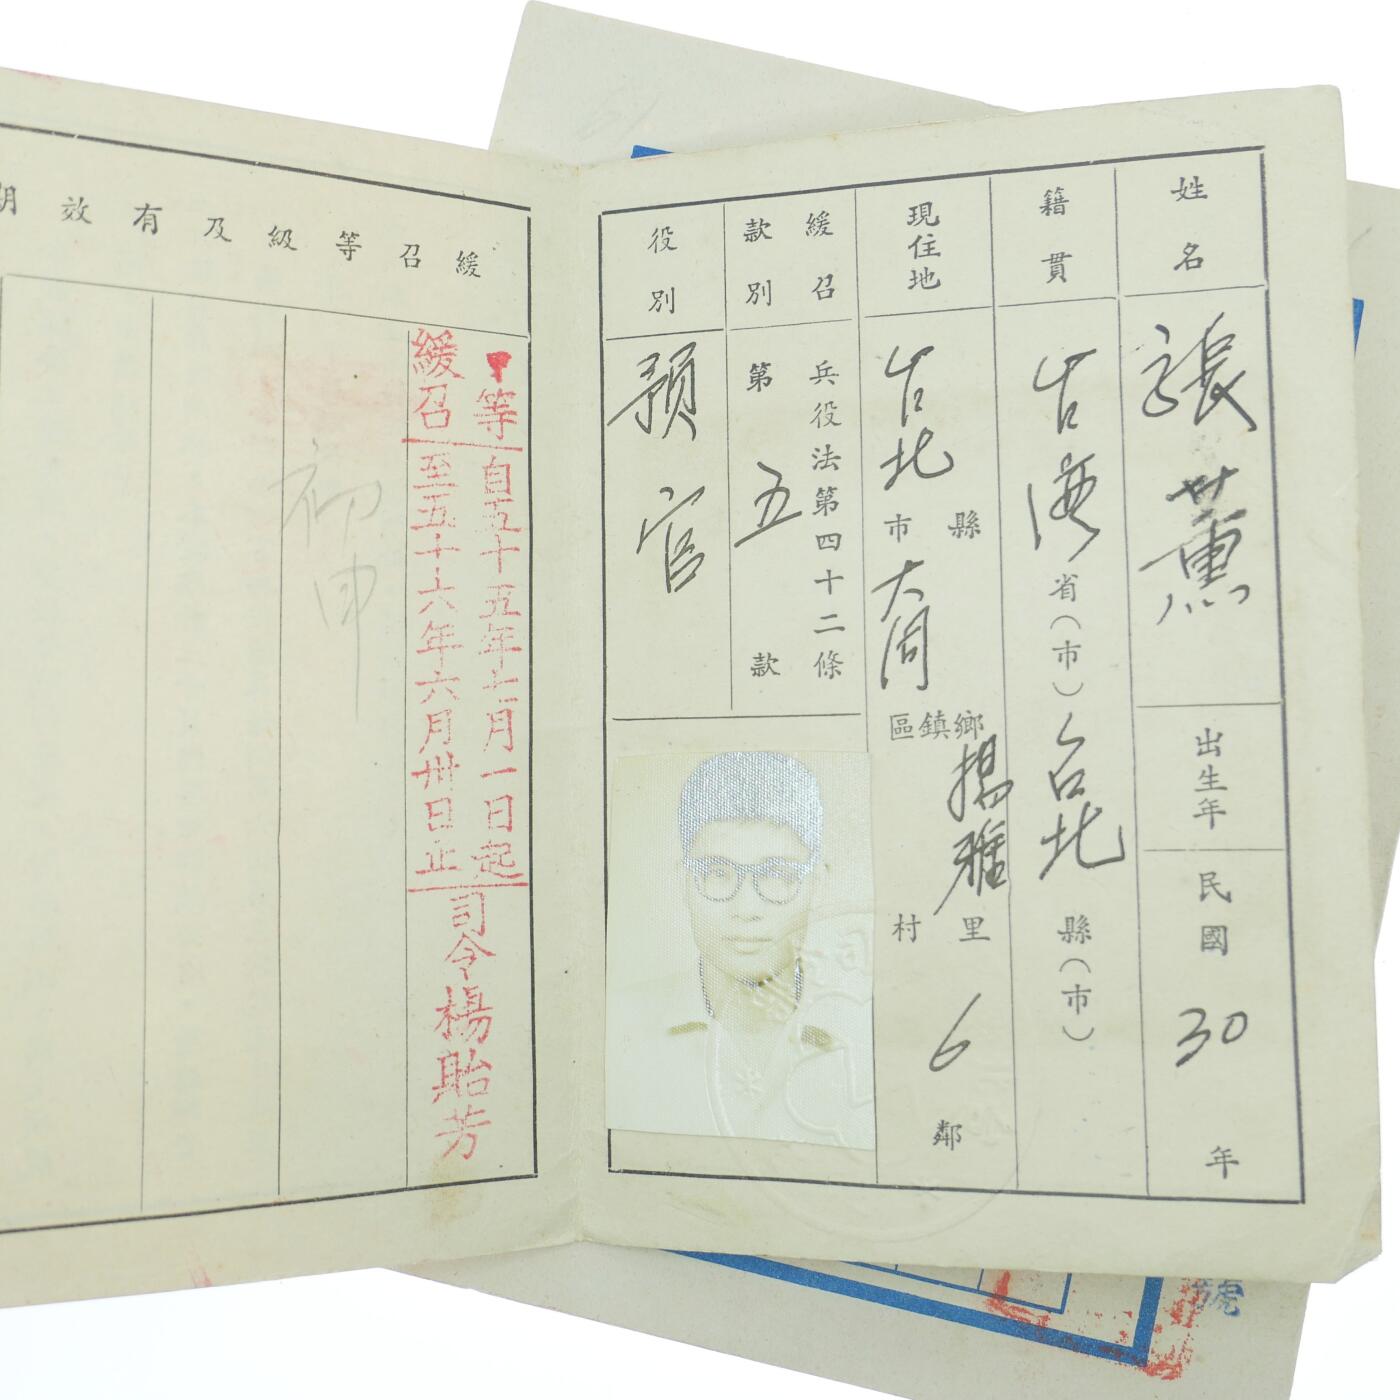 姓名
張薰
出生年
民國30年
籍貫
台灣省（市）台北縣（市）
現住地
台北縣市大同鄉鎮區揚雅里村6鄰
緩召款別
兵役法第四十二條
第五款
役別
預官
緩召等級及有效期
等緩召
自五十五年七月一日起
至五十六年六月卅日止
司令楊貽芳
初申
號